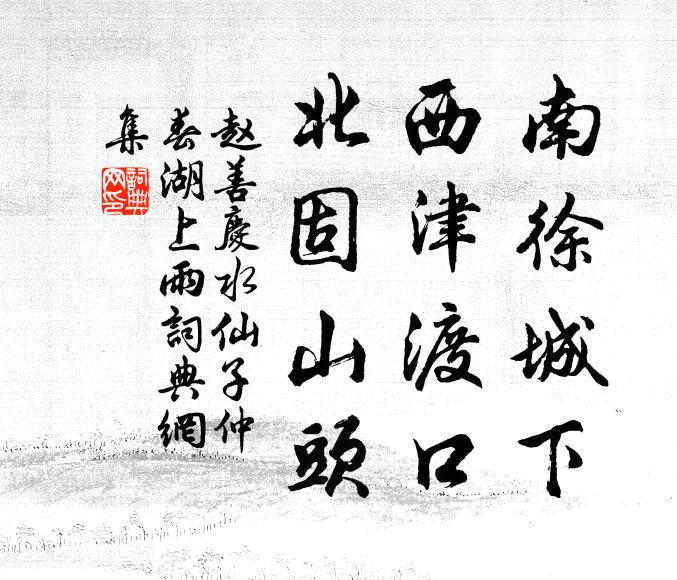 南徐城下
西津渡口
北固山頭
赵善慶水仙子仲
春湖上雨詞典網
集
詞典网印